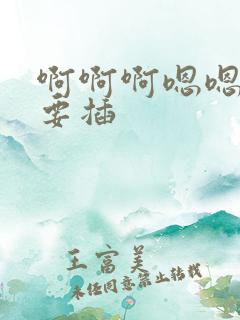 啊啊啊嗯嗯
要插
王富美
未经同意禁止转载